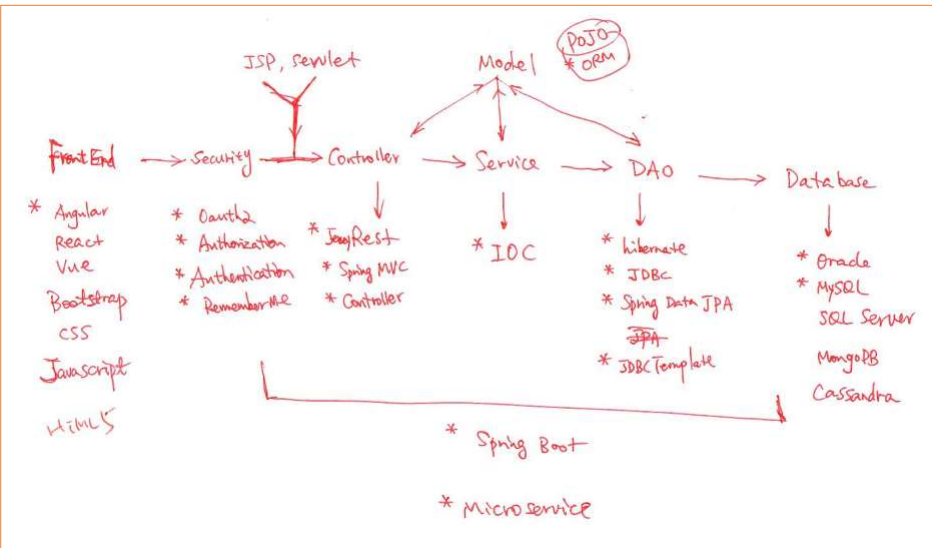 JSP, servlet
Model
POJO
* ORM
Front End
Security
Controller
Service
DAO
Database
* Angular
React
Vue
Bootstrap
CSS
Javascript
HTML5
* Oauth2
* Authorization
* Authentication
* RememberMe
* Spring MVC
* Controller
* IOC
* hibernate
* JDBC
* Spring Data JPA
JPA
* JDBC Template
* Oracle
* MySQL
SQL Server
MongoDB
Cassandra
* Spring Boot
* Microservice